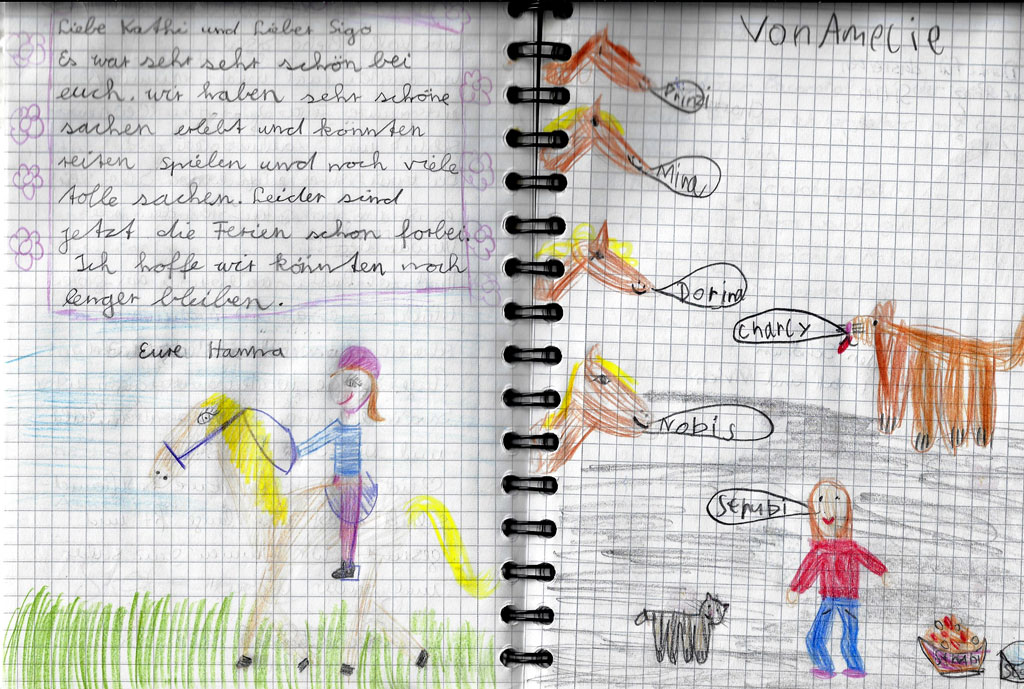 Liebe Kathi und Lieber Sigo
Es war sehr sehr schön bei
euch. wir haben sehr schöne
sachen erlebt und konnten
reiten spielen und noch viele
tolle sachen. Leider sind
jetzt die Ferien schon forbei.
Ich hoffe wir könnten noch
lenger bleiben.
Eure Hanna
Von Amelie
Prinzi
Mina
Dorina
Charly
Nobis
Strubi
Strubi